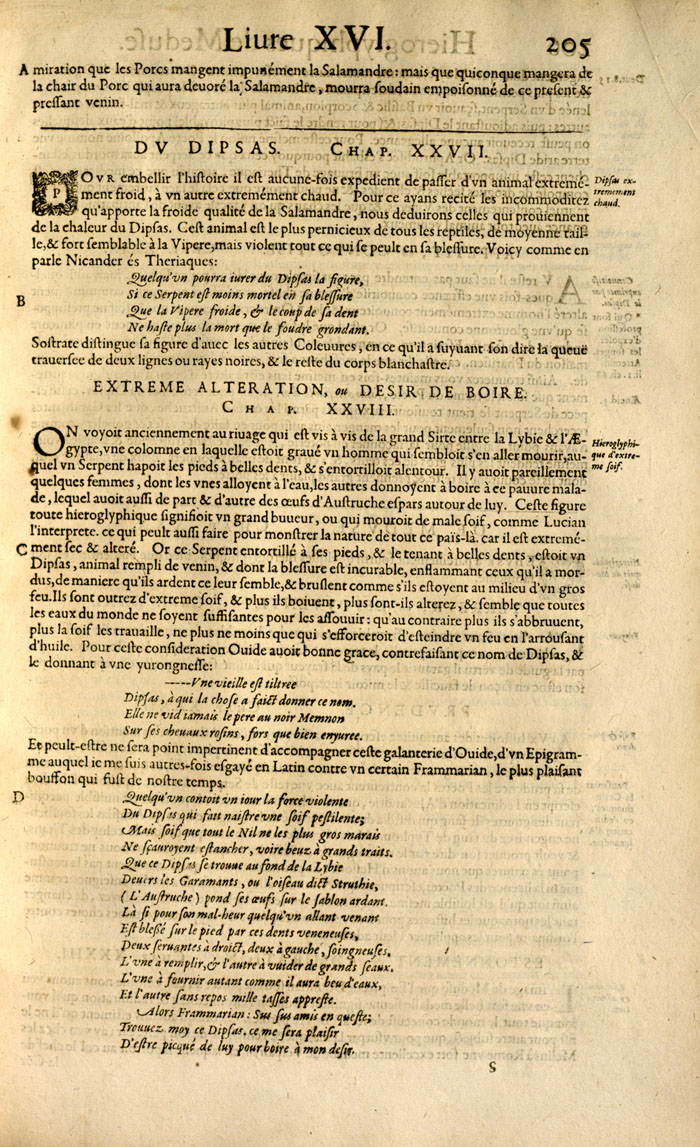 Liure XVI. 205
A miration que les Porcs mangent impunément la Salamandre: mais que quiconque mangera de
la chair du Porc qui aura deuoré la Salamandre, mourra soudain empoisonné de ce present &
pressant venin.
DV DIPSAS. CHAP. XXVII.
POVR embellir l'histoire il est aucune-fois expedient de passer d'vn animal extremé-
ment froid, à vn autre extremément chaud. Pour ce ayans recité les incommoditez
qu'apporte la froide qualité de la Salamandre, nous deduirons celles qui prouiennent
de la chaleur du Dipsas. Cest animal est le plus pernicieux de tous les reptiles, de moyenne tail-
le, & fort semblable à la Vipere, mais violent tout ce qui se peult en sa blessure. Voicy comme en
parle Nicander és Theriaques:
Dipsas ex-
tremement
chaud.
Quelqu'vn pourra iurer du Dipsas la figure,
B Si ce Serpent est moins mortel en sa blessure
Que la Vipere froide, & le coup de sa dent
Ne haste plus la mort que le foudre grondant.
Sostrate distingue sa figure d'auec les autres Coleuures, en ce qu'il a suyuant son dire la queuë
trauersee de deux lignes ou rayes noires, & le reste du corps blanchastre.
EXTREME ALTERATION, ou DESIR DE BOIRE.
CHAP. XXVIII.
ON voyoit anciennement au riuage qui est vis à vis de la grand Sirte entre la Lybie & l'Æ-
gypte, vne colomne en laquelle estoit graué vn homme qui sembloit s'en aller mourir, au-
quel vn Serpent hapoit les pieds à belles dents, & s'entortilloit alentour. Il y auoit pareillement
quelques femmes, dont les vnes alloyent à l'eau, les autres donnoyent à boire à ce pauure mala-
de, lequel auoit aussi de part & d'autre des œufs d'Austruche espars autour de luy. Ceste figure
toute hieroglyphique signifioit vn grand buueur, ou qui mouroit de male soif, comme Lucian
l'interprete. ce qui peult aussi faire pour monstrer la nature de tout ce païs-là. car il est extremé-
C ment sec & alteré. Or ce Serpent entortillé à ses pieds, & le tenant à belles dents, estoit vn
Dipsas, animal rempli de venin, & dont la blessure est incurable, enflammant ceux qu'il a mor-
dus, de maniere qu'ils ardent ce leur semble, & bruslent comme s'ils estoyent au milieu d'vn gros
feu. Ils sont outrez d'extreme soif, & plus ils boiuent, plus sont-ils alterez, & semble que toutes
les eaux du monde ne soyent suffisantes pour les assouuir: qu'au contraire plus ils s'abbruuent,
plus la soif les trauaille, ne plus ne moins que qui s'efforceroit d'esteindre vn feu en l'arrousant
d'huile. Pour ceste consideration Ouide auoit bonne grace, contrefaisant ce nom de Dipsas, &
le donnant à vne yurongnesse:
Hieroglyphi-
que d'extre-
me soif.
-----Vne vieille est tiltree
Dipsas, à qui la chose a faict donner ce nom.
Elle ne vid iamais le pere au noir Memnon
Sur ses cheuaux rosins, fors que bien enyuree.
Et peult-estre ne sera point impertinent d'accompagner ceste galanterie d'Ouide, d'vn Epigram-
me auquel ie me suis autres-fois esgayé en Latin contre vn certain Frammarian, le plus plaisant
bouffon qui fust de nostre temps.
D Quelqu'vn contoit vn iour la force violente
Du Dipsas qui fait naistre vne soif pestilente;
Mais soif que tout le Nil ne les plus gros marais
Ne sçauroyent estancher, voire beuz à grands traits.
Que ce Dipsas se trouue au fond de la Lybie
Deuers les Garamants, ou l'oiseau dict Struthie,
( L'Austruche ) pond ses œufs sur le sablon ardant.
Là si pour son mal-heur quelqu'vn allant venant
Est blessé sur le pied par ces dents veneneuses,
Deux seruantes à droict, deux à gauche, soingneuses,
L'vne à remplir, & l'autre à vuider de grands seaux,
L'vne à fournir autant comme il aura beu d'eaux,
Et l'autre sans repos mille tasses appreste.
Alors Frammarian: Sus sus amis en queste;
Trouuez moy ce Dipsas. ce me sera plaisir
D'estre picqué de luy pour boire à mon desir.
S